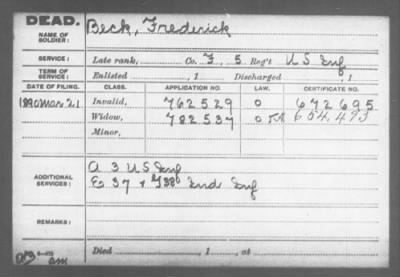 DEAD. Beck, Frederick
NAME OF SOLDIER:
SERVICE: Late rank, Co. F, 5 Reg't U S Inf
TERM OF SERVICE: Enlisted , 1 Discharged , 1
DATE OF FILING. CLASS. APPLICATION NO. LAW. CERTIFICATE NO.
1890 Mar 21 Invalid, 762529 0 672695
Widow, 782537 0 654,493
Minor,
A 3 U S Inf
ADDITIONAL SERVICES: E 37 & 38 Ind Inf
REMARKS:
Died , 1 , at